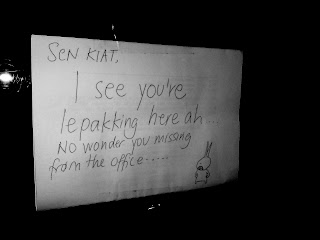 SEN KIAT,
I see you're
lepakking here ah...
No wonder you missing
from the office.....